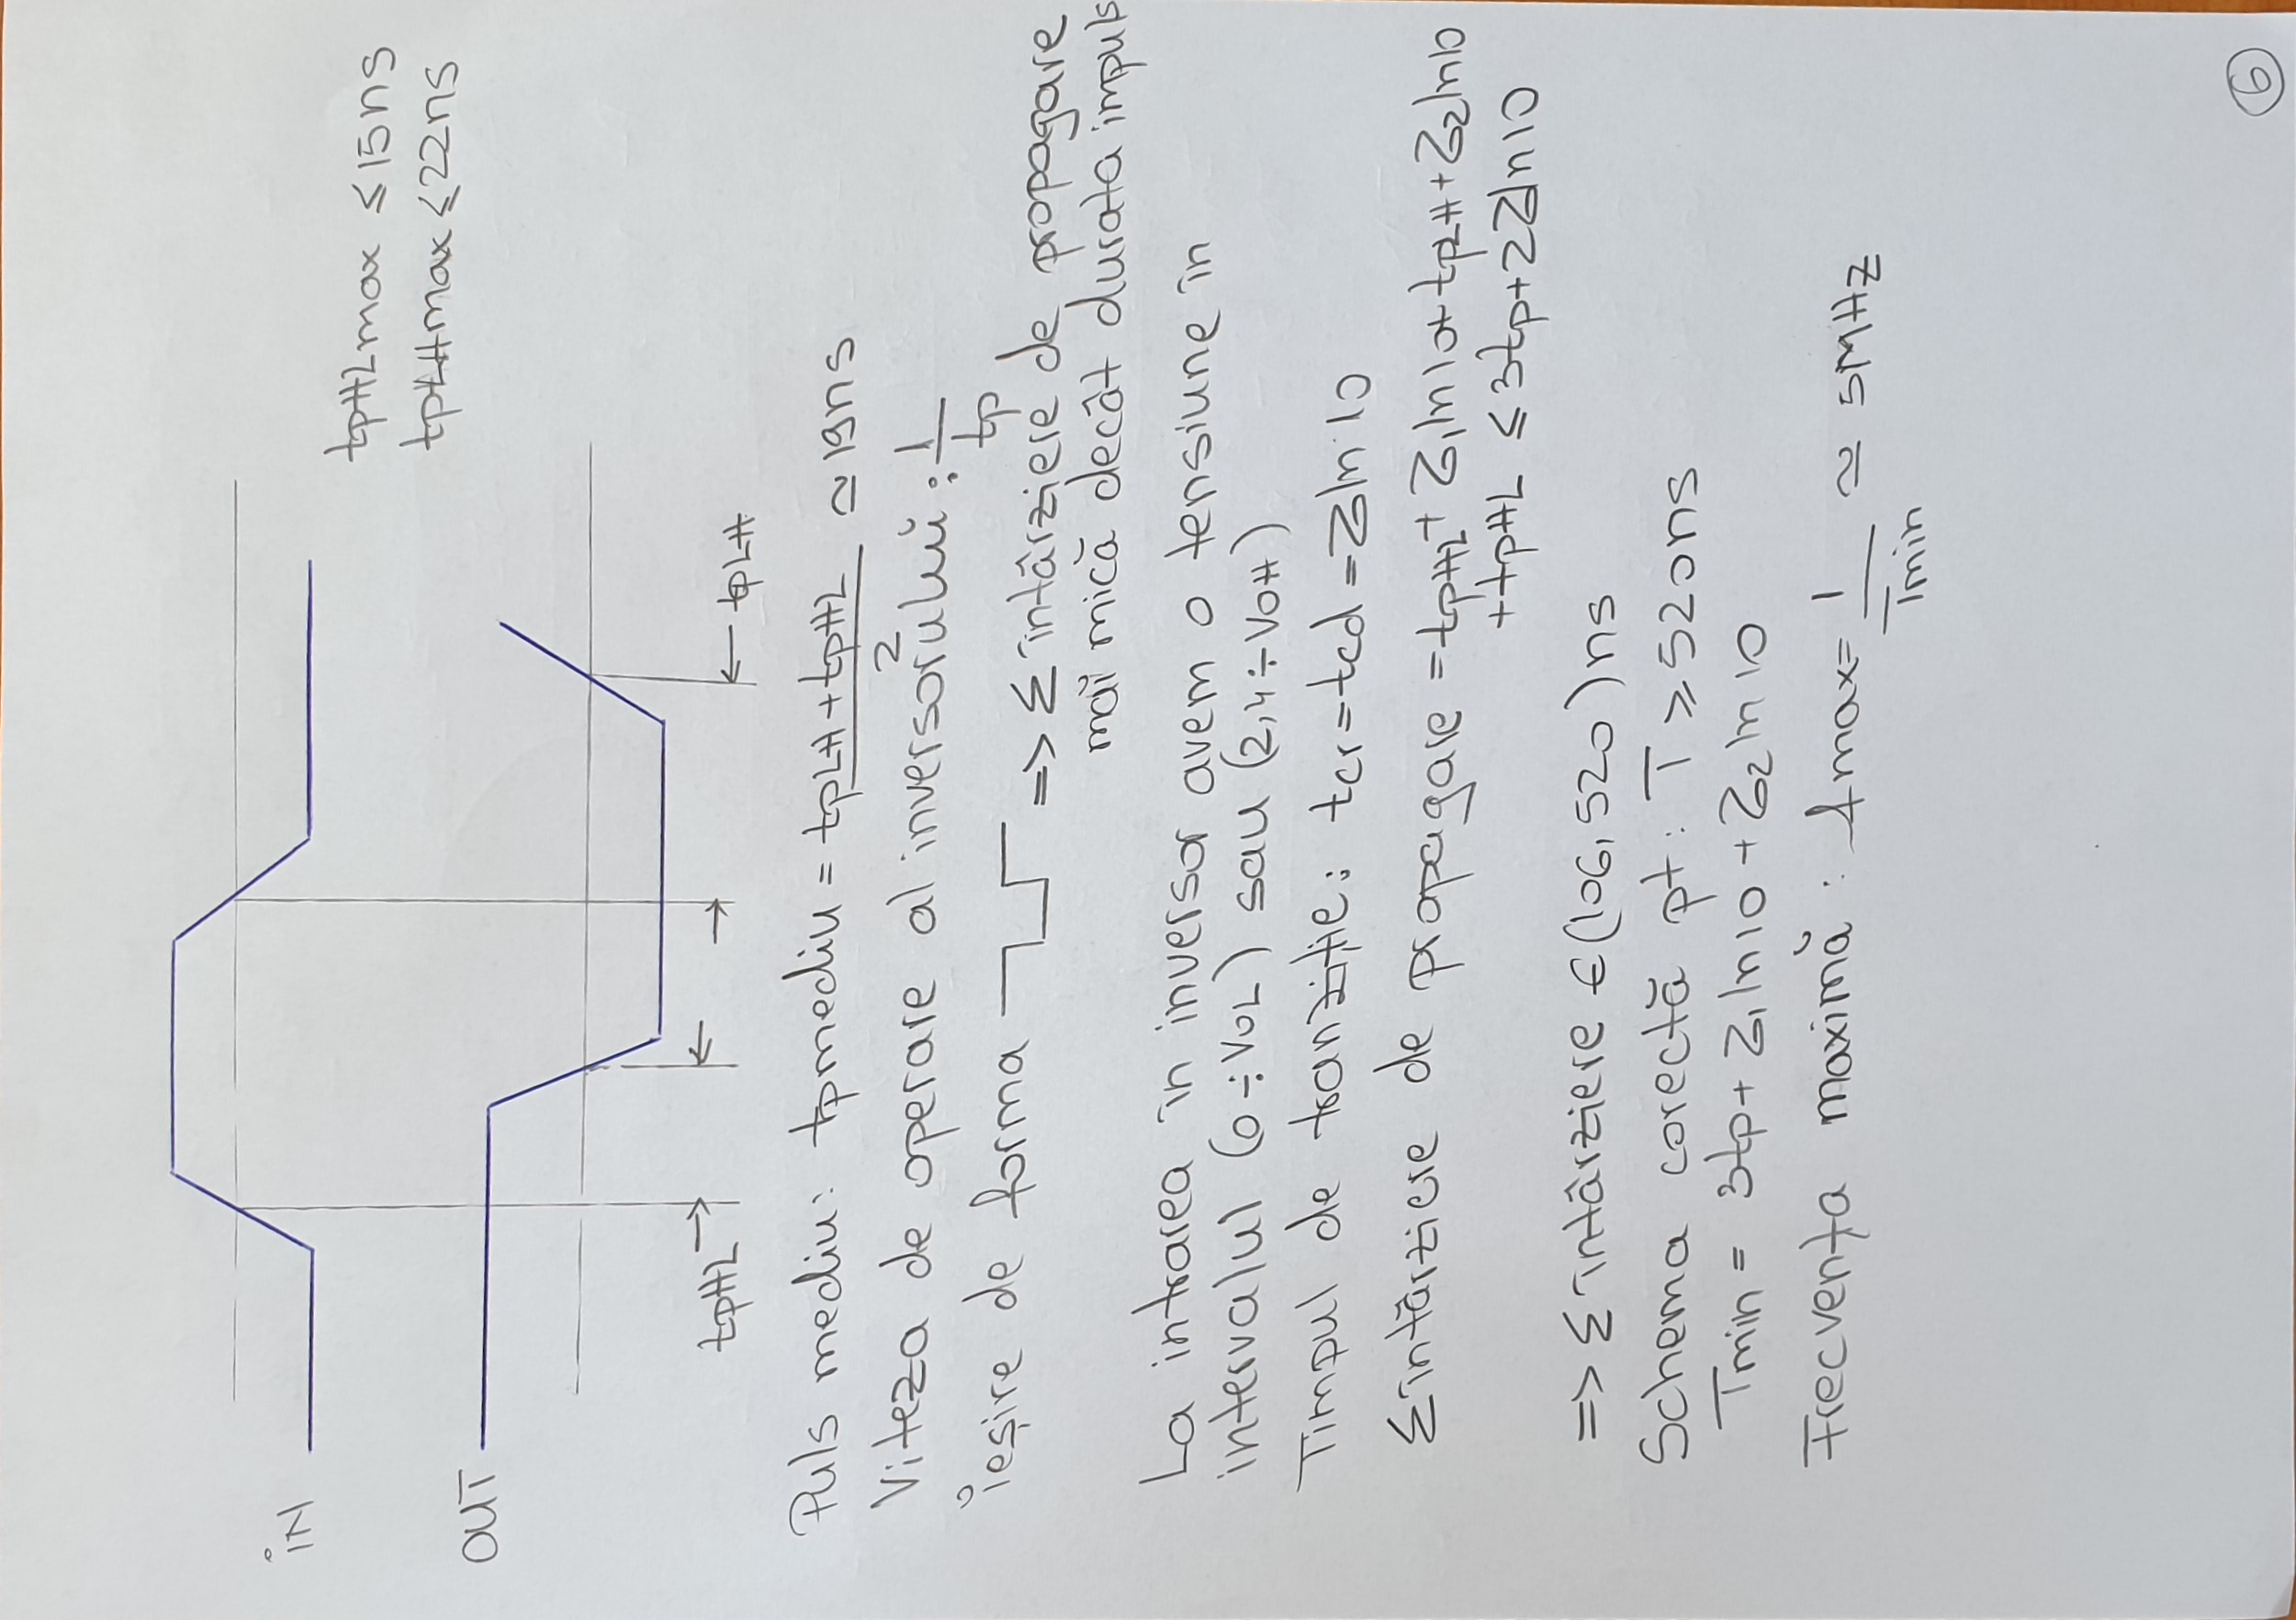 iN
tpHLmax ≤ 15ns
tpLHmax ≤ 22ns
OUT
tpHL
tpLH
Puls mediu: tpmediu = (tpLH + tpHL)/2 ≃ 19ns
Viteza de operare al inversorului: 1/tp
ieșire de forma => Σ întârziere de propagare
mai mică decât durata impuls
La intrarea în inversor avem o tensiune în
intervalul (0 ÷ VOL) sau (2,4 ÷ VOH)
Timpul de tranziție: tcr = tcd = Zln10
Σ întârziere de propagare = tpHL + Z₁ln10 + tpLH + Z₂ln10
+ tpHL ≤ 3tp + 2Zln10
=> Σ întârziere € (106, 520) ns
Schema corectă pt: T ≥ 520ns
Tmin = 3tp + Z₁ln10 + Z₂ln10
Frecvența maximă: fmax = 1/Tmin ≃ 5MHz
6